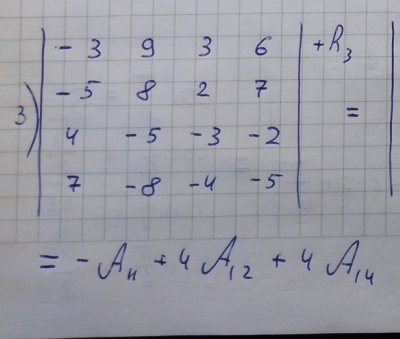 -3 9 3 6 +h₃
-5 8 2 7
3) =
4 -5 -3 -2
7 -8 -4 -5
= -A₁₁ + 4 A₁₂ + 4 A₁₄